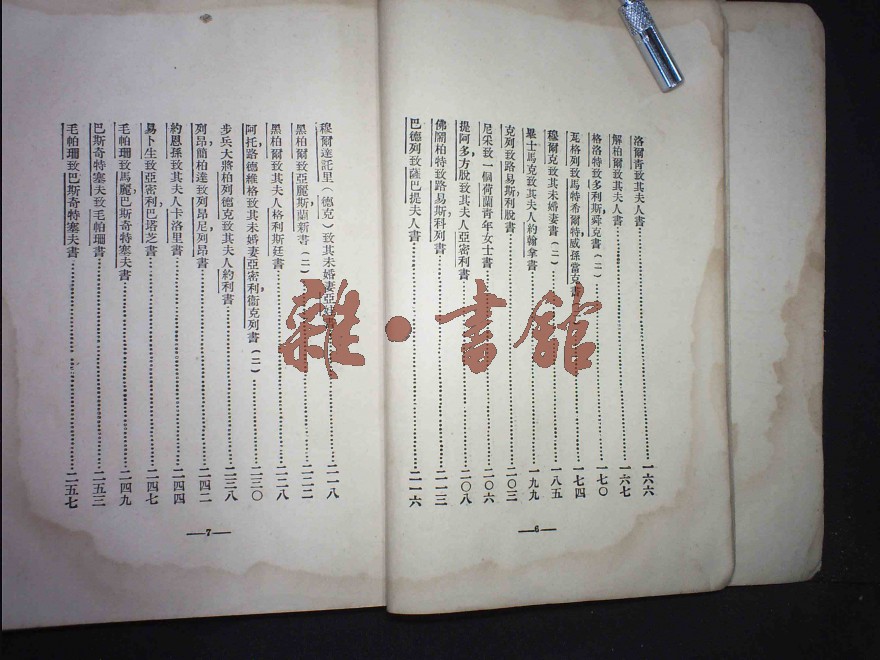 洛爾青致其夫人書……一六六
解柏爾致其夫人書……一六七
格洛特致多利斯舜克書(二)……一七〇
瓦格列致馬特希爾特威孫當克書……一七四
穆爾克致其未婚妻書(二)……一八五
畢士馬克致其夫人約翰拿書……一九九
克列致路易斯利脫書……二〇三
尼采致一個荷蘭青年女士書……二〇六
提阿多方脫致其夫人亞密利書……二〇八
佛閙柏特致路易斯科列書……二一三
巴德列致薩巴提夫人書……二一六
—6—
穆爾達託里(德克)致其未婚妻亞……二一八
黑柏爾致亞麗斯蘭新書(二)……二二二
黑柏爾致其夫人格利斯廷書……二二八
阿托路德維格致其未婚妻亞密利衞克列書(二)……二三〇
步兵大將柏列德克致其夫人約利書……二三八
列昂簡柏達致列昂尼列昂書……二四二
約恩孫致其夫人卡洛里書……二四四
易卜生致亞密利巴塔芝書……二四七
毛帕珊致馬麗巴斯奇特塞夫書……二四九
巴斯奇特塞夫致毛帕珊書……二五三
毛帕珊致巴斯奇特塞夫書……二五七
—7—
雜·書館